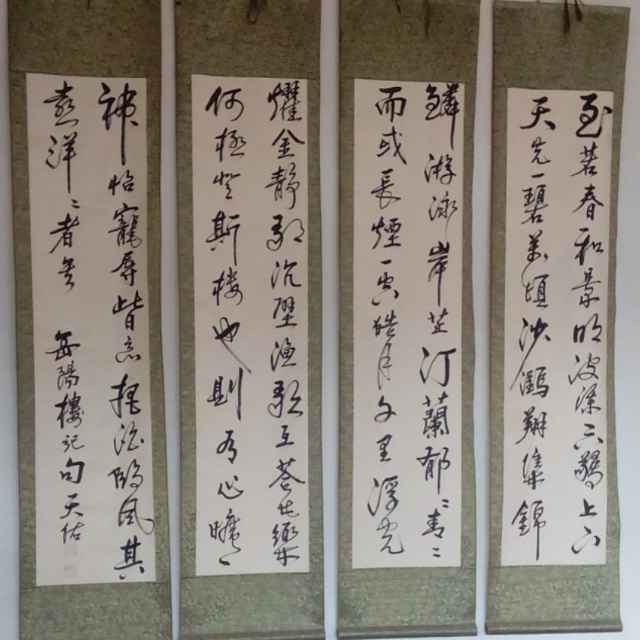 至若春和景明波瀾不驚上下
天光一碧萬頃沙鷗翔集錦
鱗游泳岸芷汀蘭郁〻青〻
而或長煙一空皓月千里浮光
燿金靜影沉璧漁歌互荅此樂
何極登斯樓也則有心曠
神怡寵辱皆忘把酒臨風其
喜洋〻者矣 岳陽樓記句 天佑